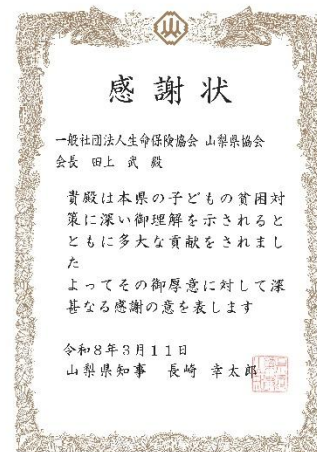 感謝状
一般社団法人生命保険協会 山梨県協会
会長 田上 武 殿
貴殿は本県の子どもの貧困対
策に深い御理解を示されると
ともに多大な貢献をされまし
た
よってその御厚意に対して深
甚なる感謝の意を表します
令和8年3月11日
山梨県知事 長崎 幸太郎